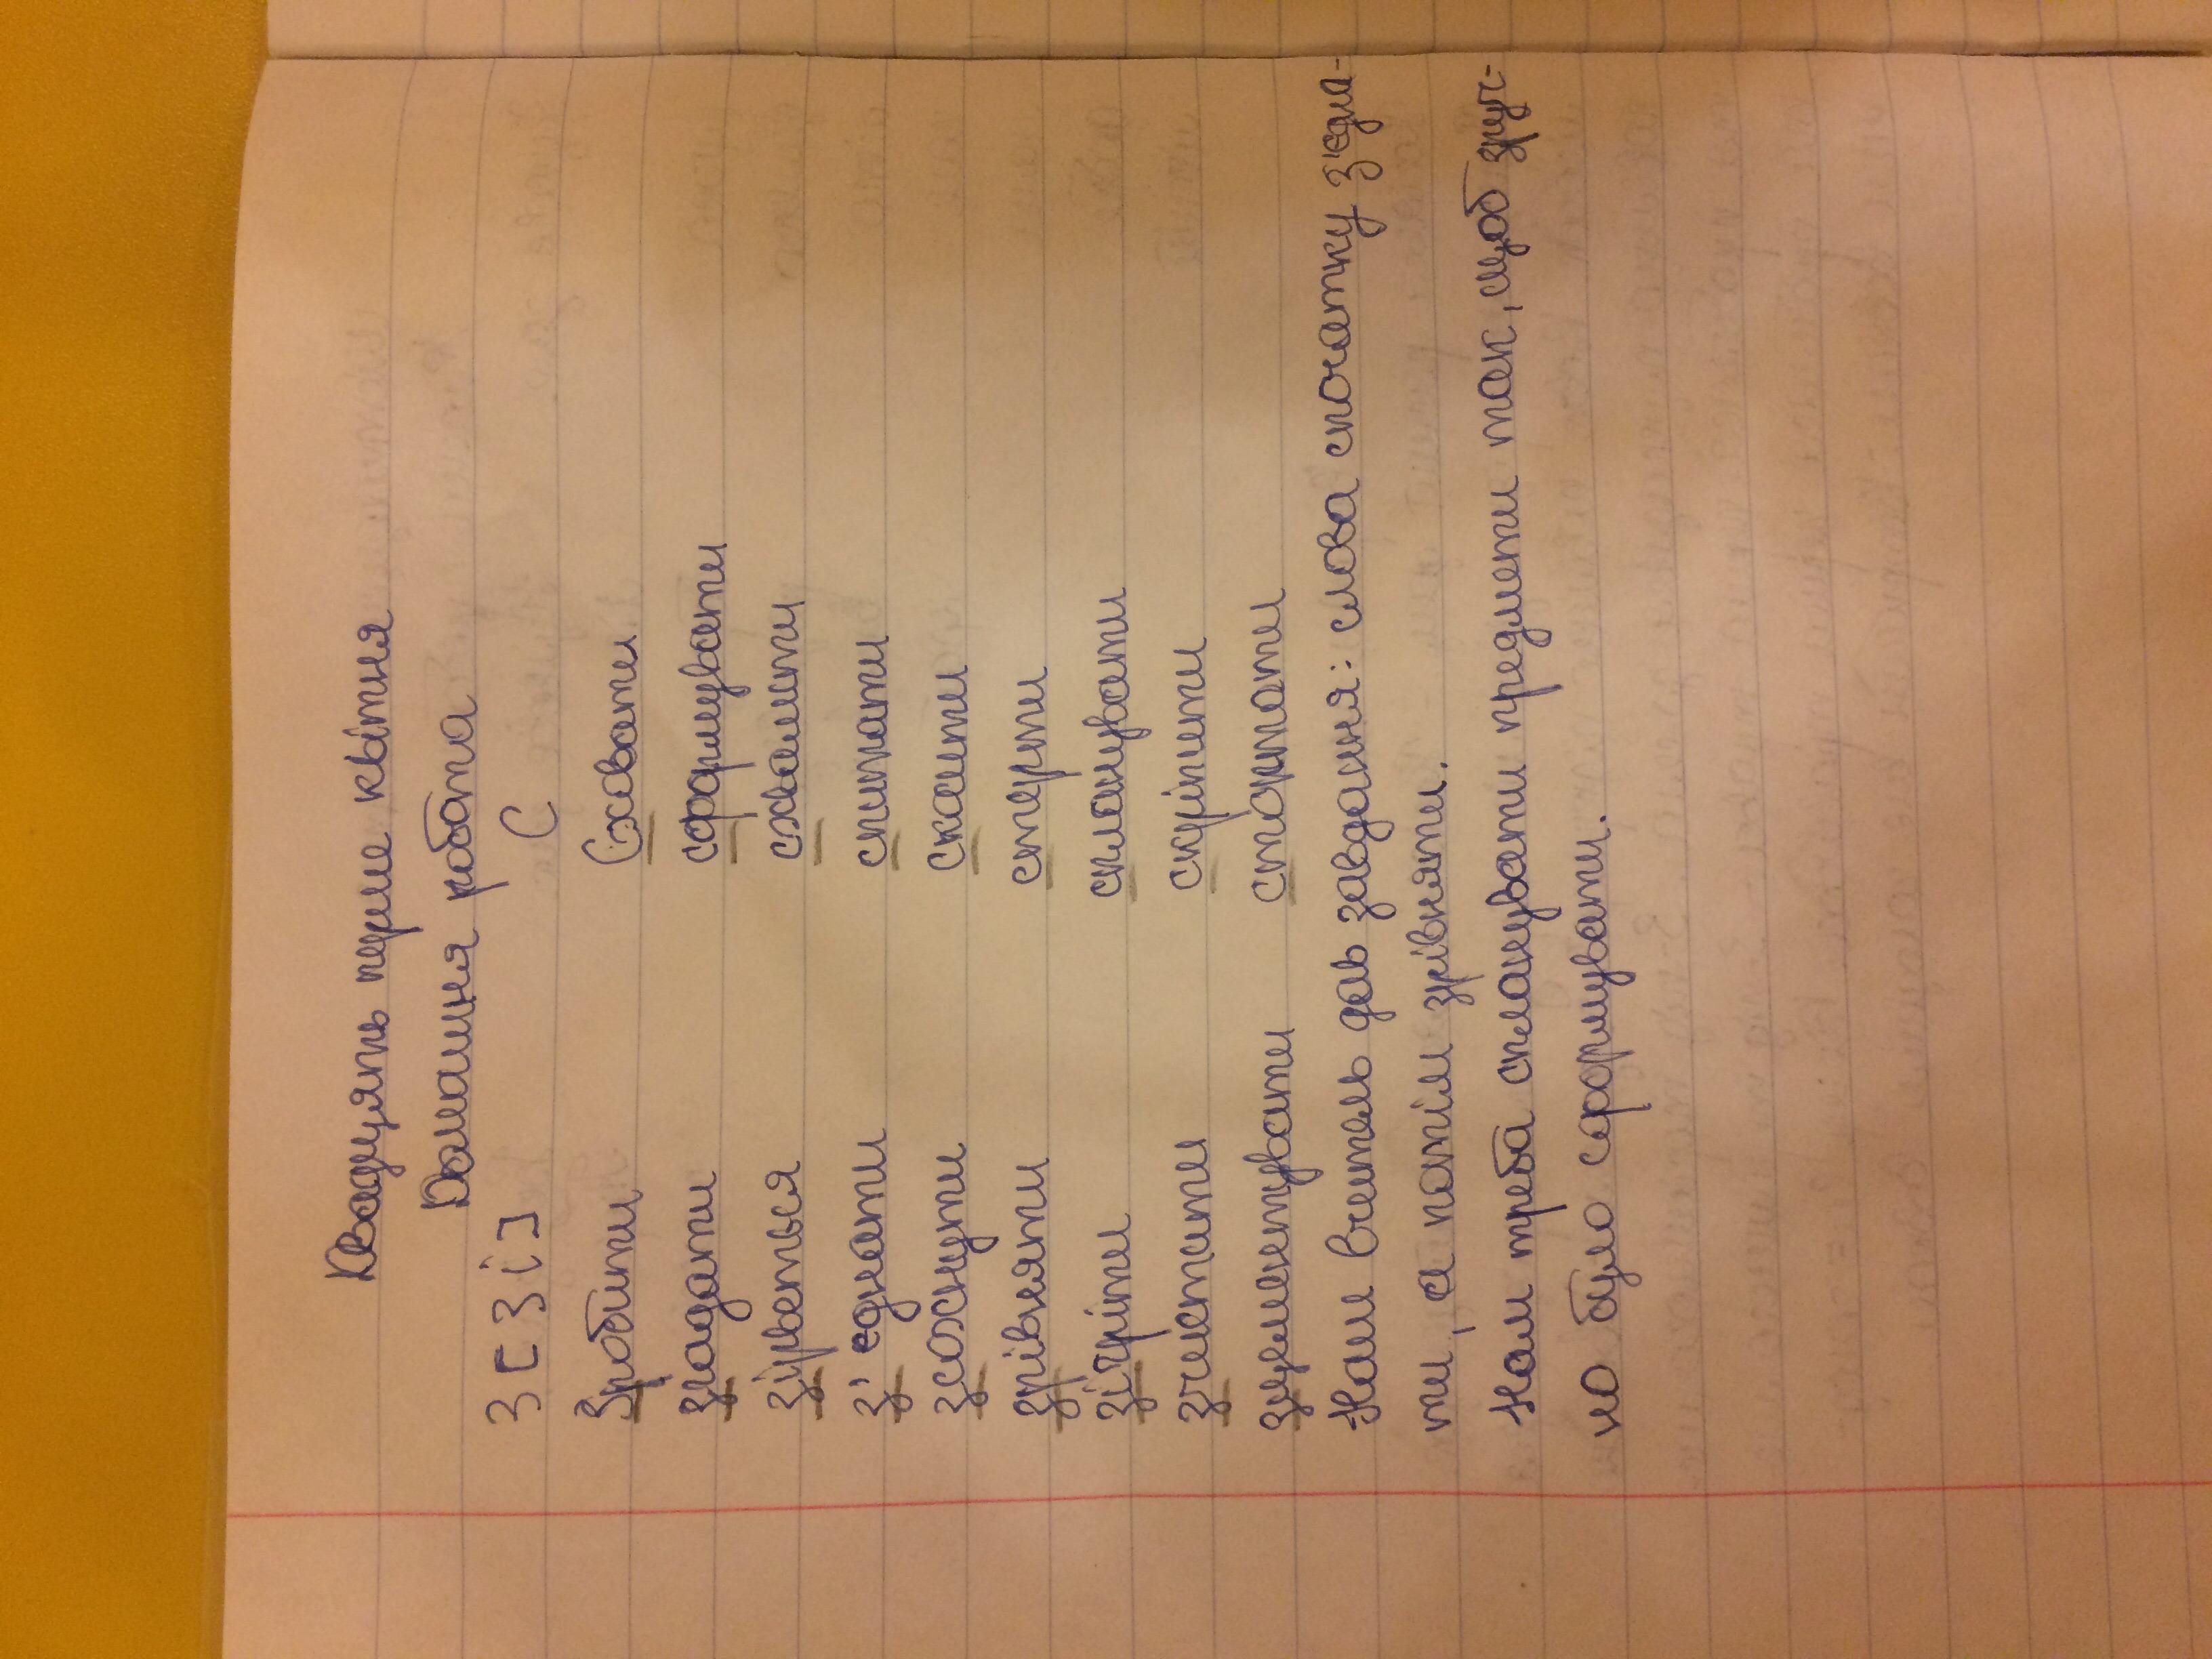 Двадцять перше квітня
Домашня робота
З [зі] С
Зробити Сховати
згадати сформувати
зірветься схвалити
з'єднати спитати
зсохнути сказати
зрівняти стерти
зігріти спланувати
зчистити скріпити
зцементувати стоптати
Нам вчитель дав завдання: слова спочатку з'єдна-
ти, а потім зрівняти.
Нам треба спланувати предмети так, щоб зруч-
но було сформувати.